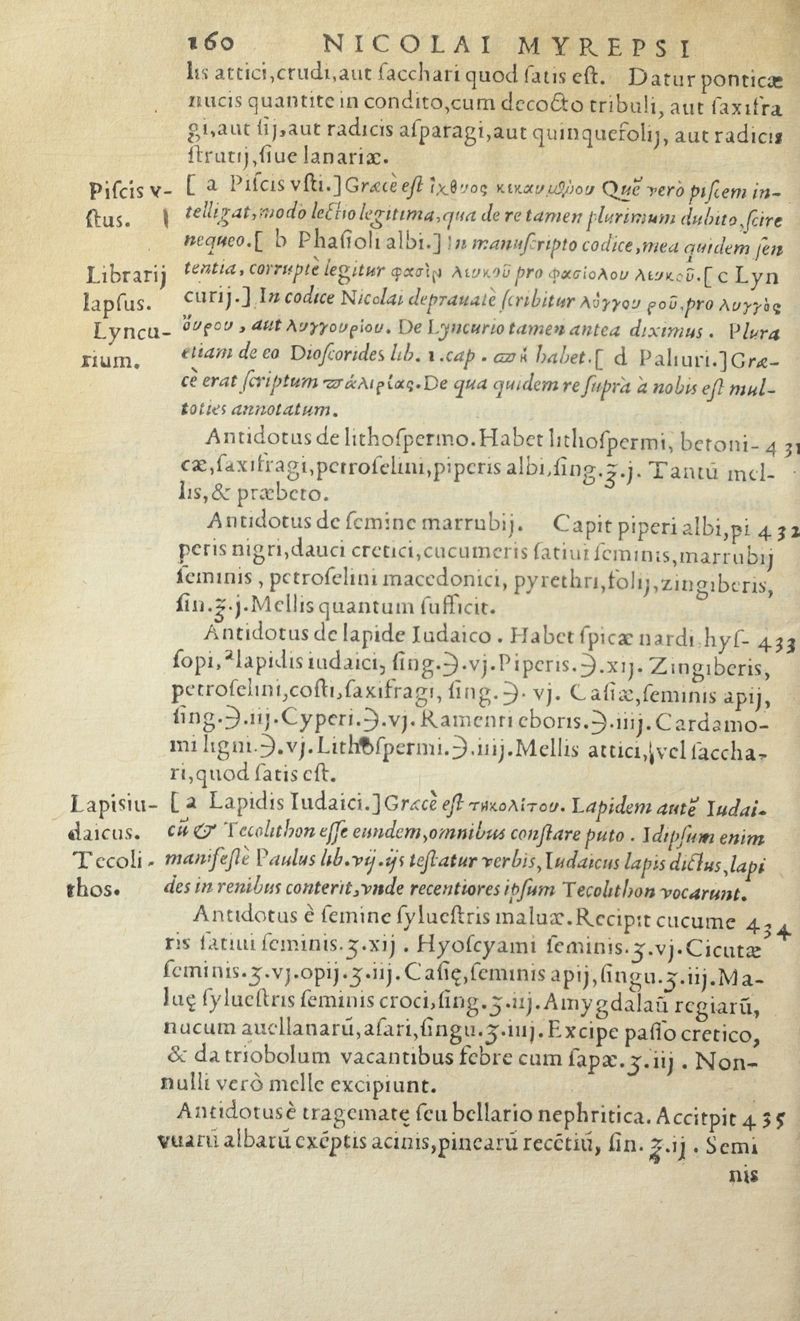 160 NICOLAI MYREPSI
lis attici,crudi,aut ſacchari quod ſatis eſt. Datur ponticæ
nucis quantitè in condito,cum decocto tribuli, aut ſaxifra
gi,aut iij,aut radicis aſparagi,aut quinquefolij, aut radicis
ſtrutij,ſiue lanariæ.
Piſcis v-
ſtus.
[ a Piſcis vſti.] Græcè eſt ἰχθύος κεκαυμένου Que verò piſcem in-
telligat,modo lectio legitima,qua de re tamen plurimum dubito,ſcire
nequeo.[ b Phaſioli albi.] In manuſcripto codice,mea quidem ſen
Librarij
lapſus.
tentia, corruptè legitur φασὶρ λευκοῦ pro φασίολου λευκοῦ.[ c Lyn
curij.] In codice Nicolai deprauatè ſcribitur λόγγου ροῦ,pro λυγγὸς
Lyncu-
rium.
οὐρου , aut λυγγουρίου. De Lyncurio tamen antea diximus . Plura
etiam de eo Dioſcorides lib. 1.cap . habet.[ d Paliuri.] Græ-
cè erat ſcriptum παλιρίας.De qua quidem re ſupra à nobis eſt mul-
toties annotatum.
Antidotus de lithoſpermo. Habet lithoſpermi, betoni- 431
cæ,ſaxifragi,petroſelini,piperis albi,ſing.ʒ.j. Tantū mel-
lis,& præbeto.
Antidotus de ſemine marrubij. Capit piperi albi,pi 432
peris nigri,dauci cretici,cucumeris ſatiui ſeminis,marrubij
ſeminis , petroſelini macedonici, pyrethri,folij,zingiberis,
ſin.ʒ.j.Mellis quantum ſufficit.
Antidotus de lapide Iudaico . Habet ſpicæ nardi hyſ- 433
ſopi,ᵃlapidis iudaici, ſing.℈.vj.Piperis.℈.xij. Zingiberis,
petroſelini,coſti,ſaxifragi, ſing.℈. vj. Caſiæ,ſeminis apij,
ſing.℈.iij.Cyperi.℈.vj.Ramenti eboris.℈.iiij.Cardamo-
mi ligni.℈.vj.Lithoſpermi.℈.iiij.Mellis attici,vel ſaccha-
ri,quod ſatis eſt.
Lapis iu-
daicus.
[ a Lapidis Iudaici.] Græcè eſt τηκολίτου. Lapidem autē Iudai-
cū & Tecolithon eſſe eundem,omnibus conſtare puto . Idipſum enim
Tecoli-
thos.
manifeſtè Paulus lib.vij.ijs teſtatur verbis,Iudaicus lapis dictus,lapi
des in renibus conterit,vnde recentiores ipſum Tecolithon vocarunt.
Antidotus è ſemine ſylueſtris maluæ.Recipit cucume 434
ris ſatiui ſeminis.ʒ.xij . Hyoſcyami ſeminis.ʒ.vj.Cicutæ
ſeminis.ʒ.vj.opij.ʒ.iij.Caſię,ſeminis apij,ſingu.ʒ.iij.Ma-
luę ſylueſtris ſeminis croci,ſing.ʒ.iij.Amygdalaū regiarū,
nucum auellanarū,aſari,ſingu.ʒ.iiij.Excipe paſſo cretico,
& da triobolum vacantibus febre cum ſapæ.ʒ.iij . Non-
nulli verò melle excipiunt.
Antidotusè tragemate ſeu bellario nephritica. Accitpit 435
vuarū albarū exēptis acinis,pinearū recētiū, ſin. ʒ.ij . Semi
nis